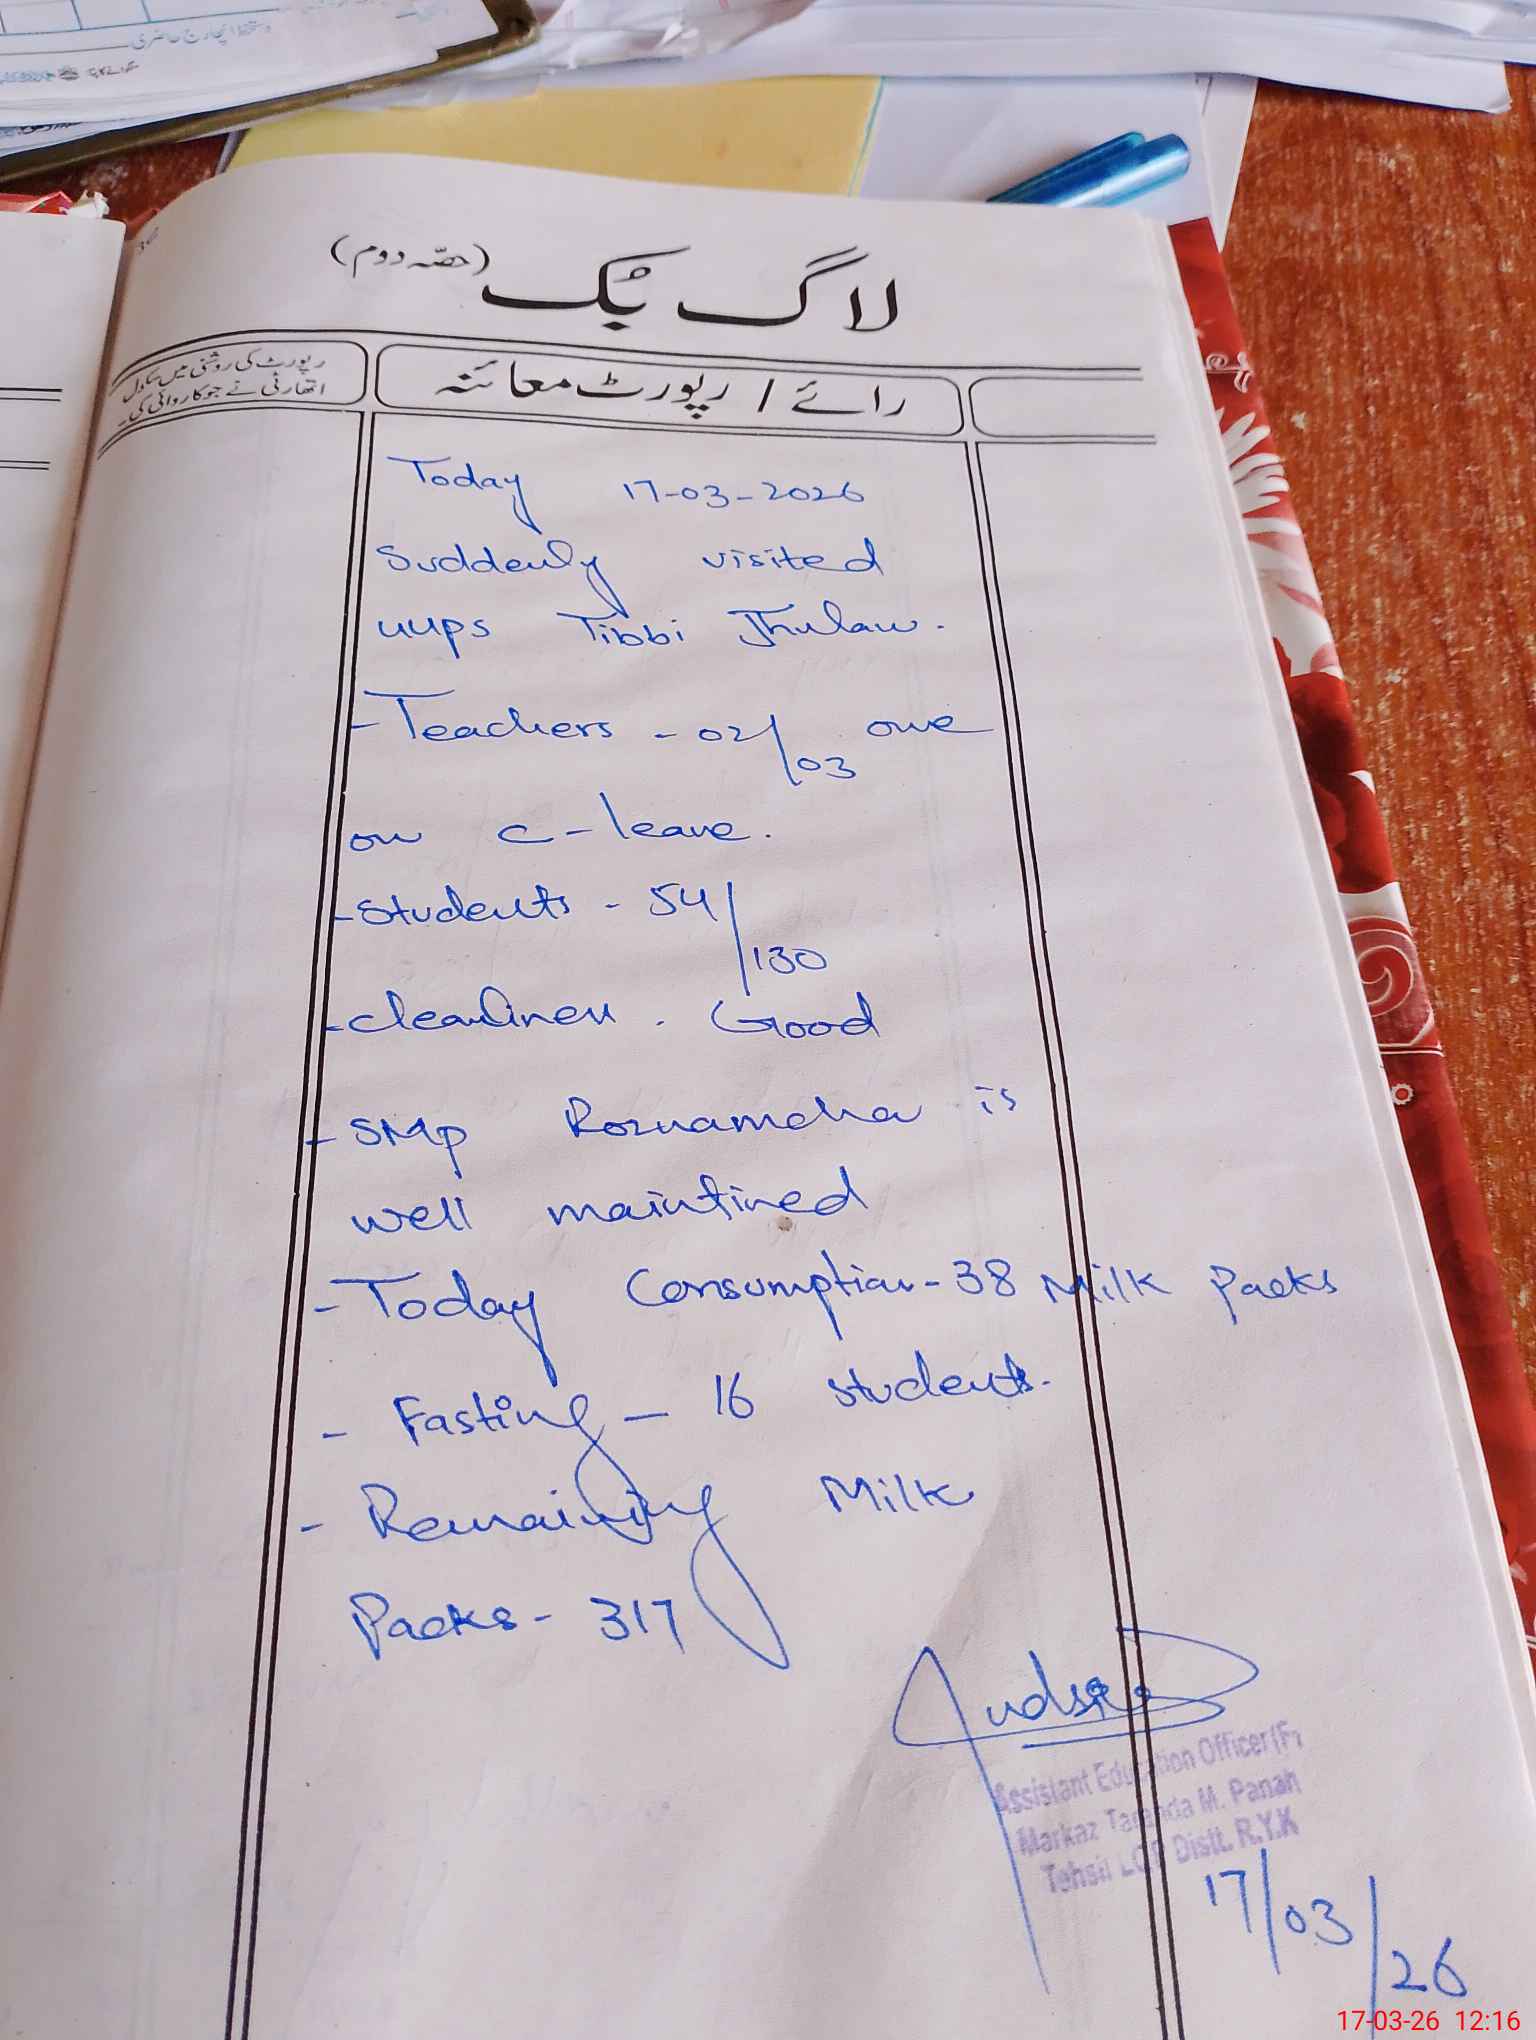 لاگ بک (حصّہ دوم)
رپورٹ کی روشنی میں سکول
اتھارٹی نے جو کاروائی کی۔
رائے / رپورٹ معائنہ
Today 17-03-2026
Suddenly visited
uups Tibbi Jhulan.
- Teachers - 02/03 one
on c-leave.
- Students - 54/130
- cleanliness . Good
- SMP Roznamcha is
well maintined
- Today Consumption - 38 Milk Packs
- Fasting - 16 students.
- Remaining Milk
Packs - 317
Assistant Education Officer (F)
Markaz Taranda M. Panah
Tehsil LQP Distt. R.Y.K
17/03/26
17-03-26 12:16